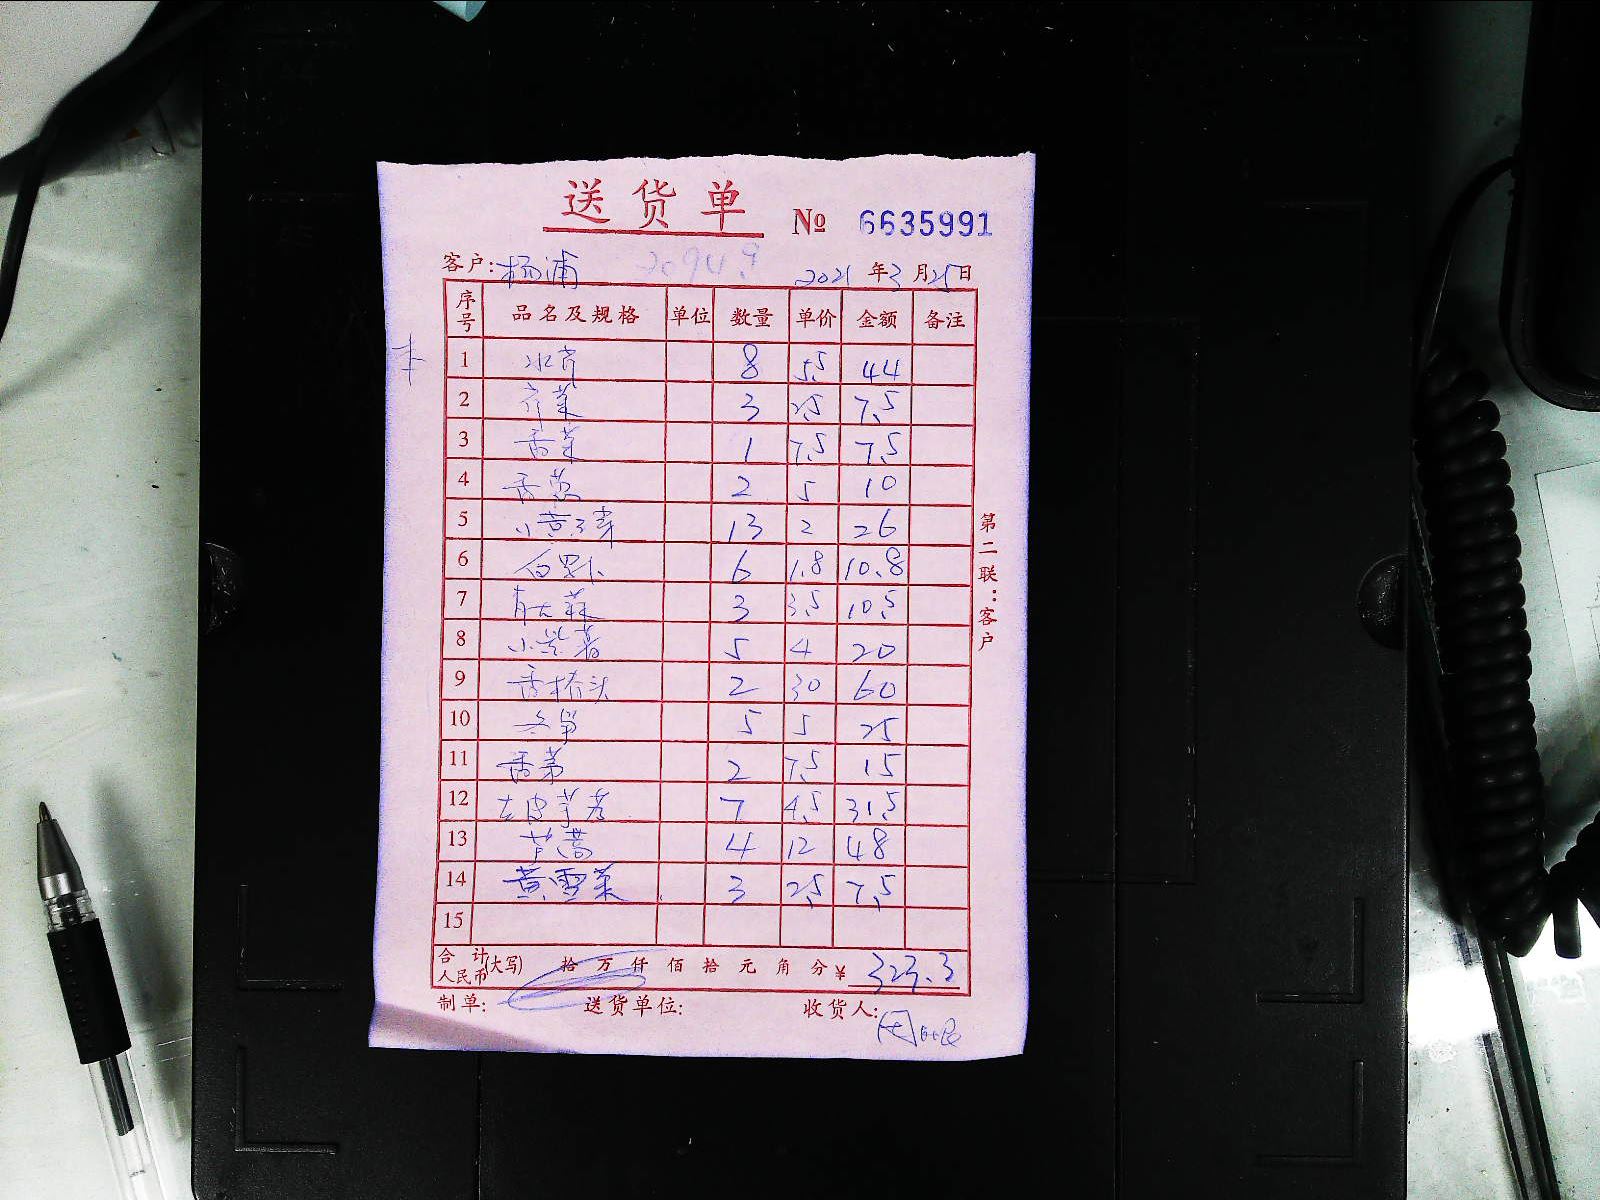 送货单 № 6635991
客户: 杨浦 2094.9 2021 年 3 月 25 日
序号 品名及规格 单位 数量 单价 金额 备注
1 水芹 8 5.5 44
2 芹菜 3 2.5 7.5
3 香菜 1 7.5 7.5
4 香葱 2 5 10
5 小黄豆芽 13 2 26
6 白罗卜 6 1.8 10.8
7 3 3.5 10.5
8 小紫薯 5 4 20
9 香椿头 2 30 60
10 冬笋 5 5 25
11 香茅 2 7.5 15
12 去皮芋艿 7 4.5 31.5
13 芦蒿 4 12 48
14 黄雪菜 3 2.5 7.5
15
合计人民币(大写) 拾 万 仟 佰 拾 元 角 分 ¥ 323.3
制单: 送货单位: 收货人:
第二联:客户